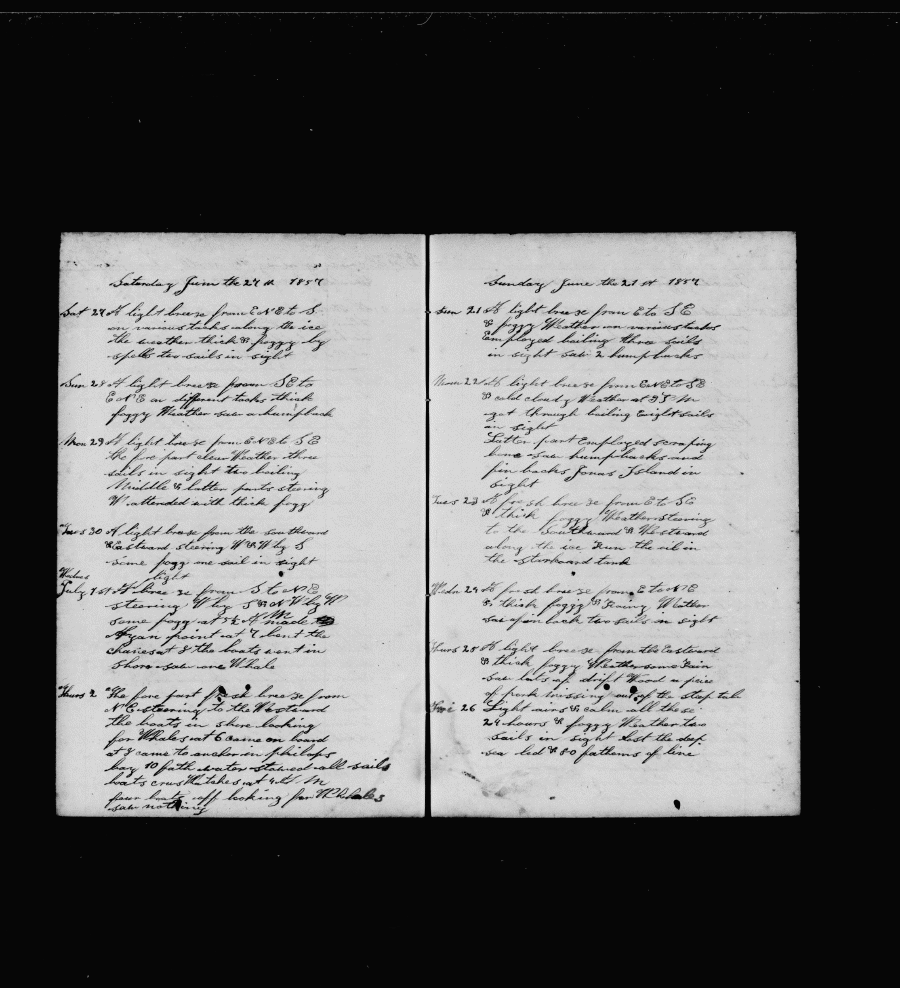 Saturday Junn the 27th 1857
Sat 27 A light breeze from E N E to S.
on various tacks along the ice
the weather thick & foggy by
spells two sails in sight
Sun 28 A light breeze from S E to
E N E on different tacks thick
foggy Weather saw a humpback
Mon 29 A light breeze from E N E to S E
the fore part clear Weather three
sails in sight two boiling
Middle & latter parts steering
W. attended with thick fogg
Tues 30 A light breeze from the southward
& Eastward steering W & W by S
some fogg one sail in sight
Wednes light
July 1st A breeze from S to N E
steering W by S & N W by W
some fogg at 3½ A M made
Ayan point at 7 bent the
chains at 8 the boats went in
shore saw one Whale
Thurs 2 The fore part fresh breeze from
N E steering to the Westward
the boats in shore looking
for Whales at 6 came on board
at 8 came to anchor in philops
bay 10 fath water stowed all sails
boats crus at 4 A M
four boats off looking for Whales
saw nothing
Sunday June the 21st 1857
Sun 21 A light breeze from E to S E
& foggy Weather on various tacks
Employed boiling three sails
in sight saw 2 humpbacks
Mon 22 A light breeze from E N E to S E
& cold cloudy Weather at 9 P M
got through boiling Eight sails
in sight
Latter part Employed scraping
bone saw humpbacks and
finbacks Jonas Island in
sight
Tues 23 A fresh breeze from E to S E
& thick foggy Weather steering
to the Southward & Westward
along the ice Run the oil in
the starboard tank
Wedn 24 A fresh breeze from E to N E
& thick foggy & Rainy Weather
saw open back two sails in sight
Thurs 25 A light breeze from the Eastward
& thick foggy Weather some Rain
saw lots of drift Wood a peice
of pork missing out of the step tub
Fri 26 Light airs & calm all these
24 hours & foggy Weather two
sails in sight lost the deep
sea led & 80 fathoms of line